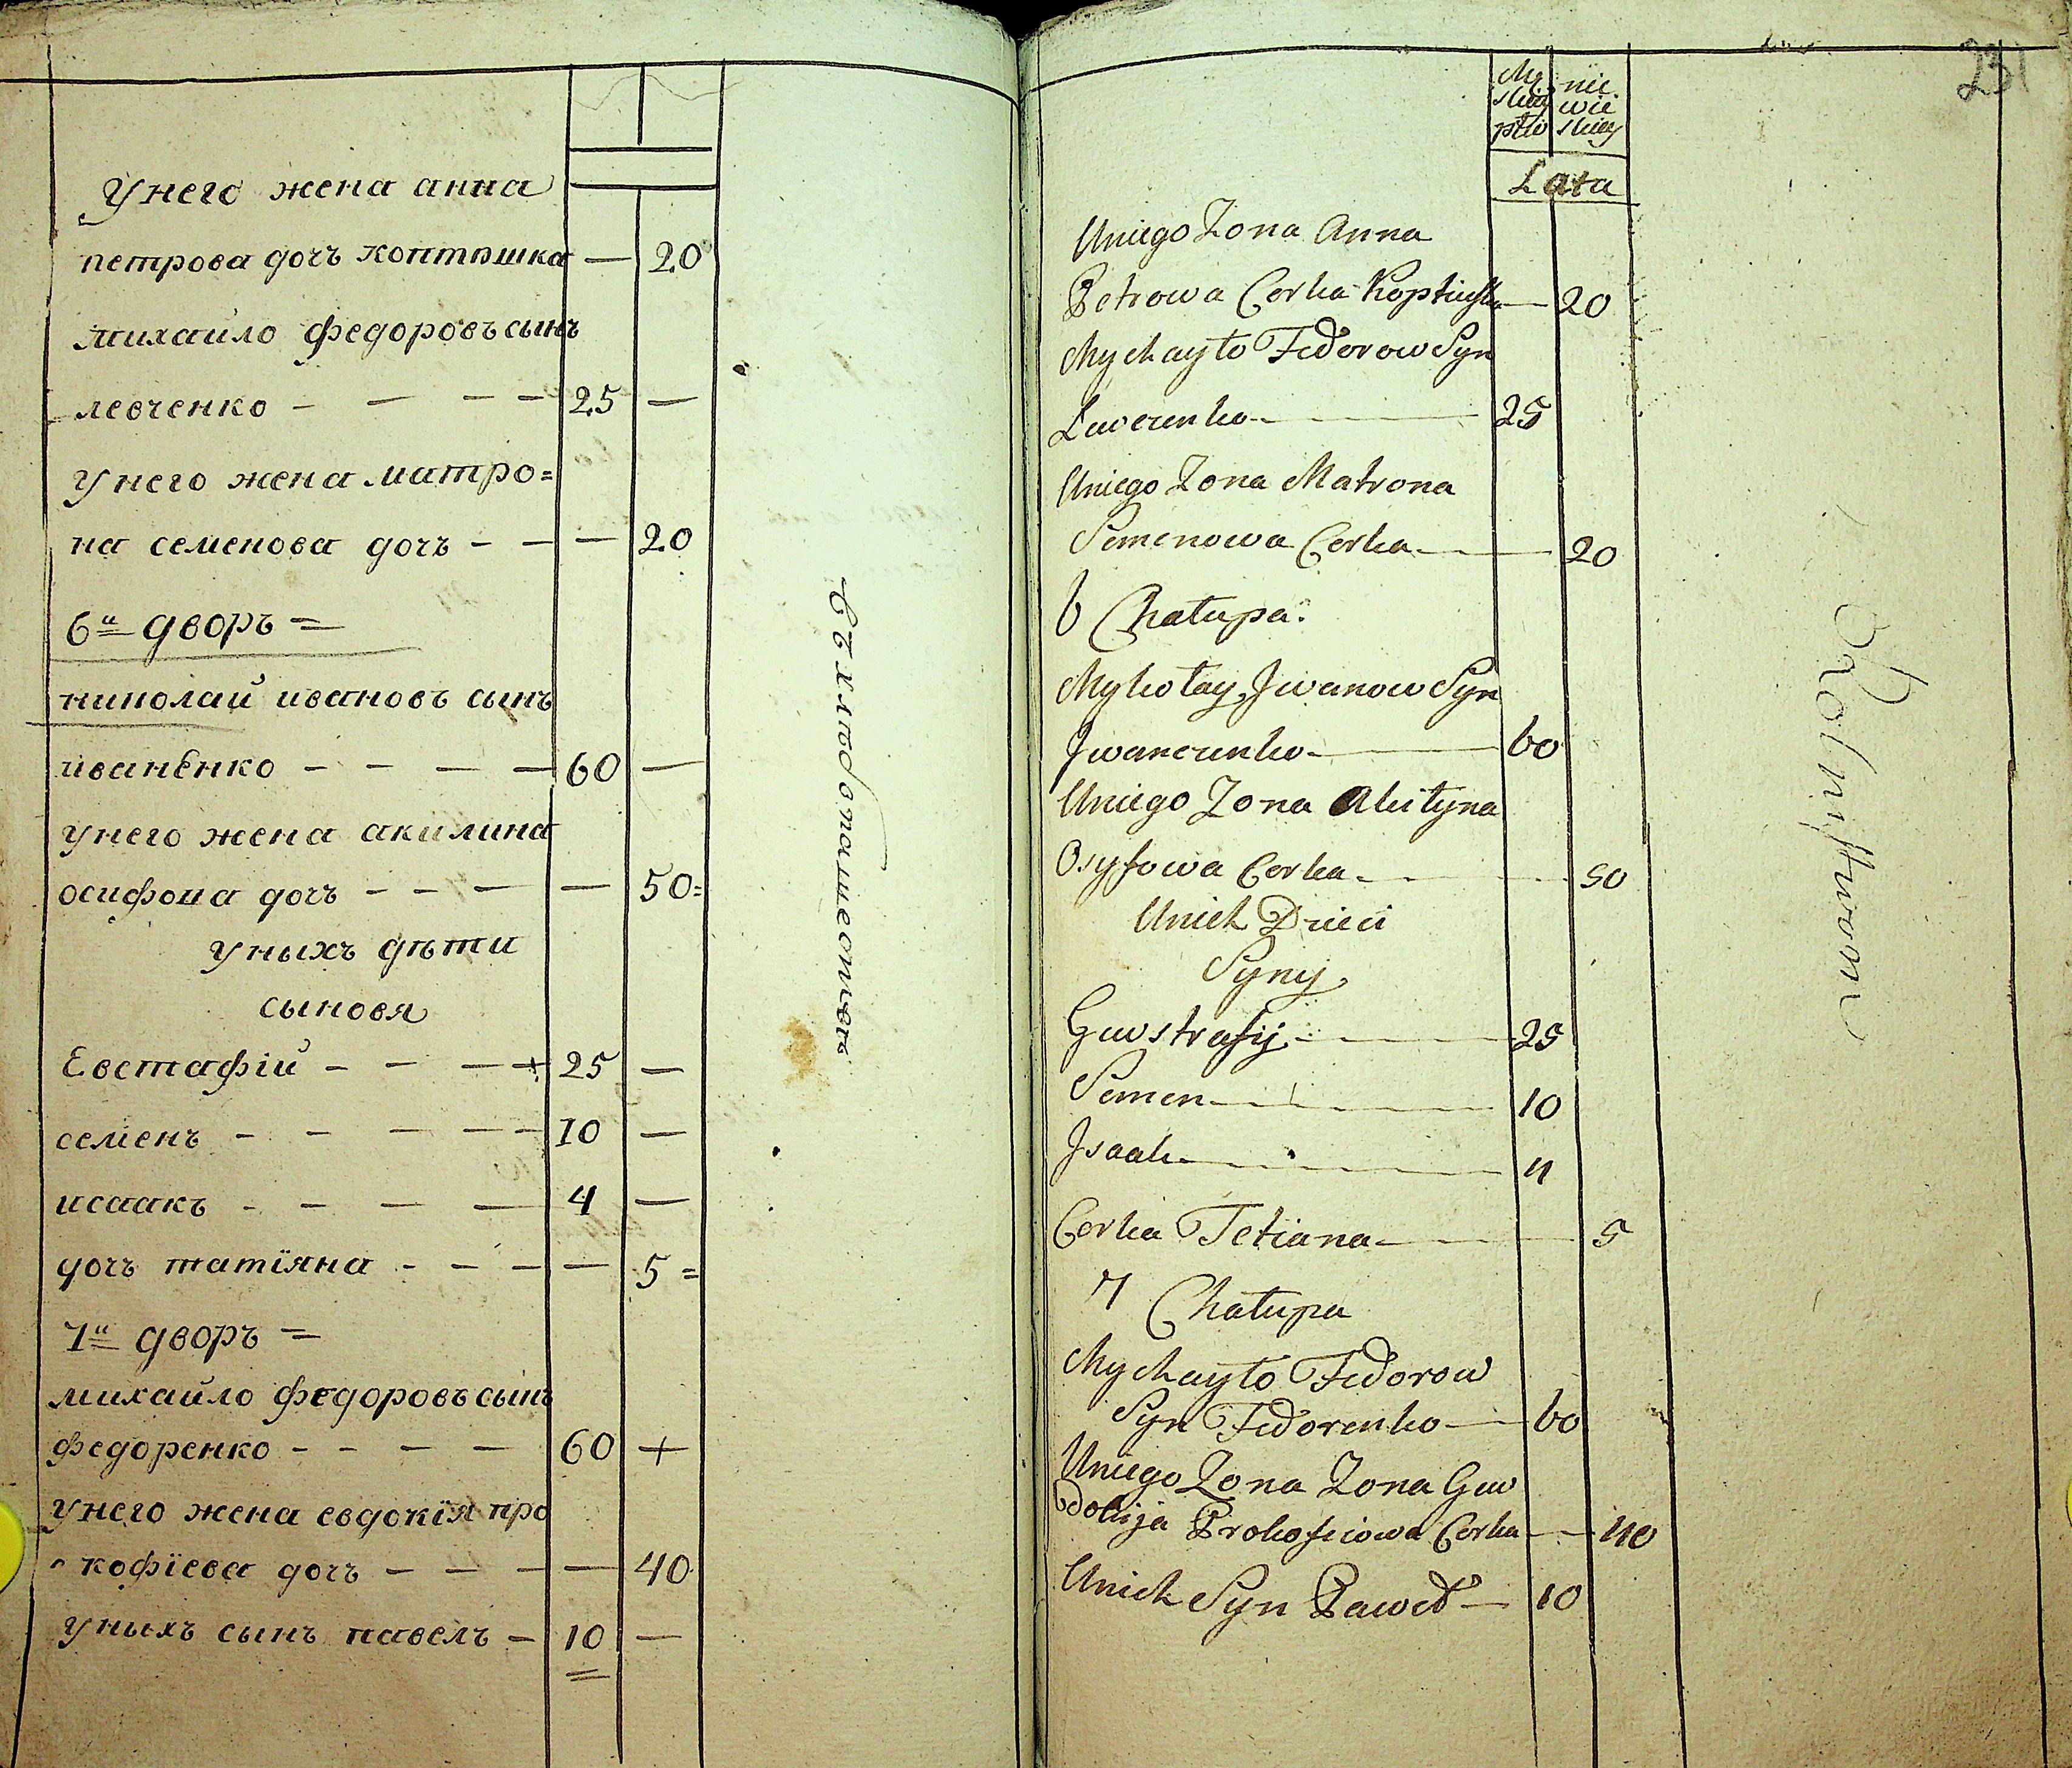 у него жена анна
петрова дочъ коптѣшка — 20
михайло федоровъ сынъ
левченко — — — — 25 —
у него жена матро=
на семенова дочъ — — — 20
6й дворъ =
николай ивановъ сынъ
иванѐнко — — — — 60 —
у него жена акилина
осифона дочъ — — — — 50=
у ныхъ дѣти
сыновя
Евстафій — — — + 25 —
семенъ — — — — — 10 —
исаакъ — — — — 4 —
дочъ татїяна — — — — 5 =
7й дворъ =
михайло федоровъ сынъ
федоренко — — — — 60 +
у него жена евдокїя про
кофїева дочъ — — — — 40
у ныхъ сынъ павелъ — 10 —
въ хлѣбопашествѣ
231
nie
wie
skiey
Lata
Uniego Zona Anna
Petrowa Corka — 20
Mychayło Fedorow Syn
Lewczenko — 25
Uniego Zona Matrona
Semenowa Corka — 20
6 Chałupa.
Mykołay Jwanow Syn
Jwanczenko — 60
Uniego Zona Akiłyna
Osyfowa Corka — 50
Unich Dzieci
Syny
Gewstrafij — 25
Semen — 10
Jsaak — 4
Corka Tetiana — 5
7 Chałupa
Mychayło Fedorow
Syn Fedorenko — 60
Uniego Zona Zona Gew
dokija Prokofiowa Corka — 40
Unich Syn Paweł — 10
Rolnistwom